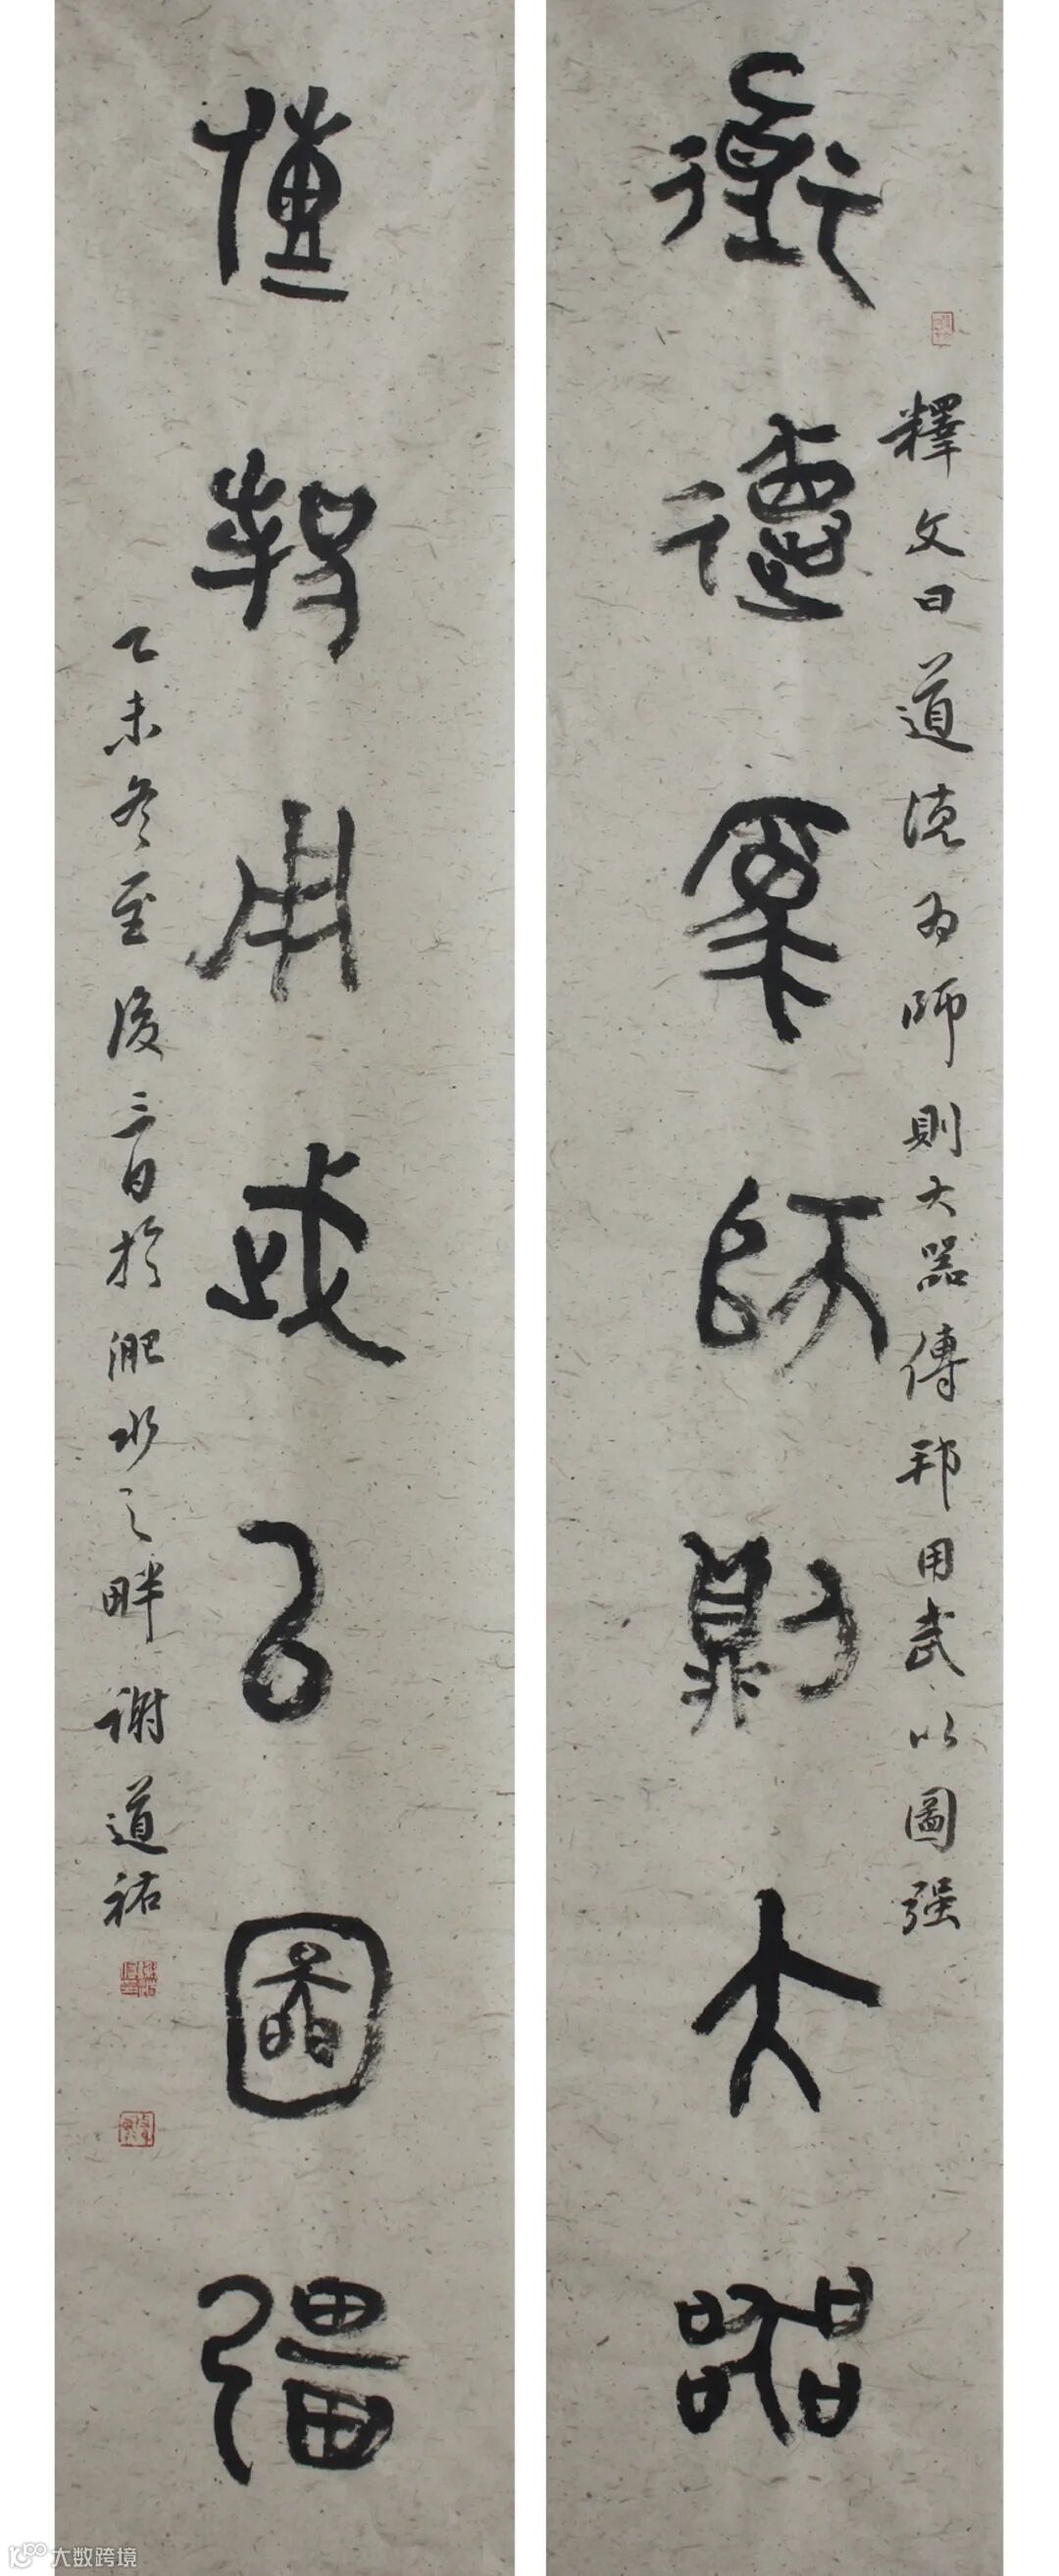 道德为师则大器
傳邦用武以圖彊
釋文曰道德为師則大器傳邦用武以圖强
乙未冬至後三日於淝水之畔謝道祐
大数跨境